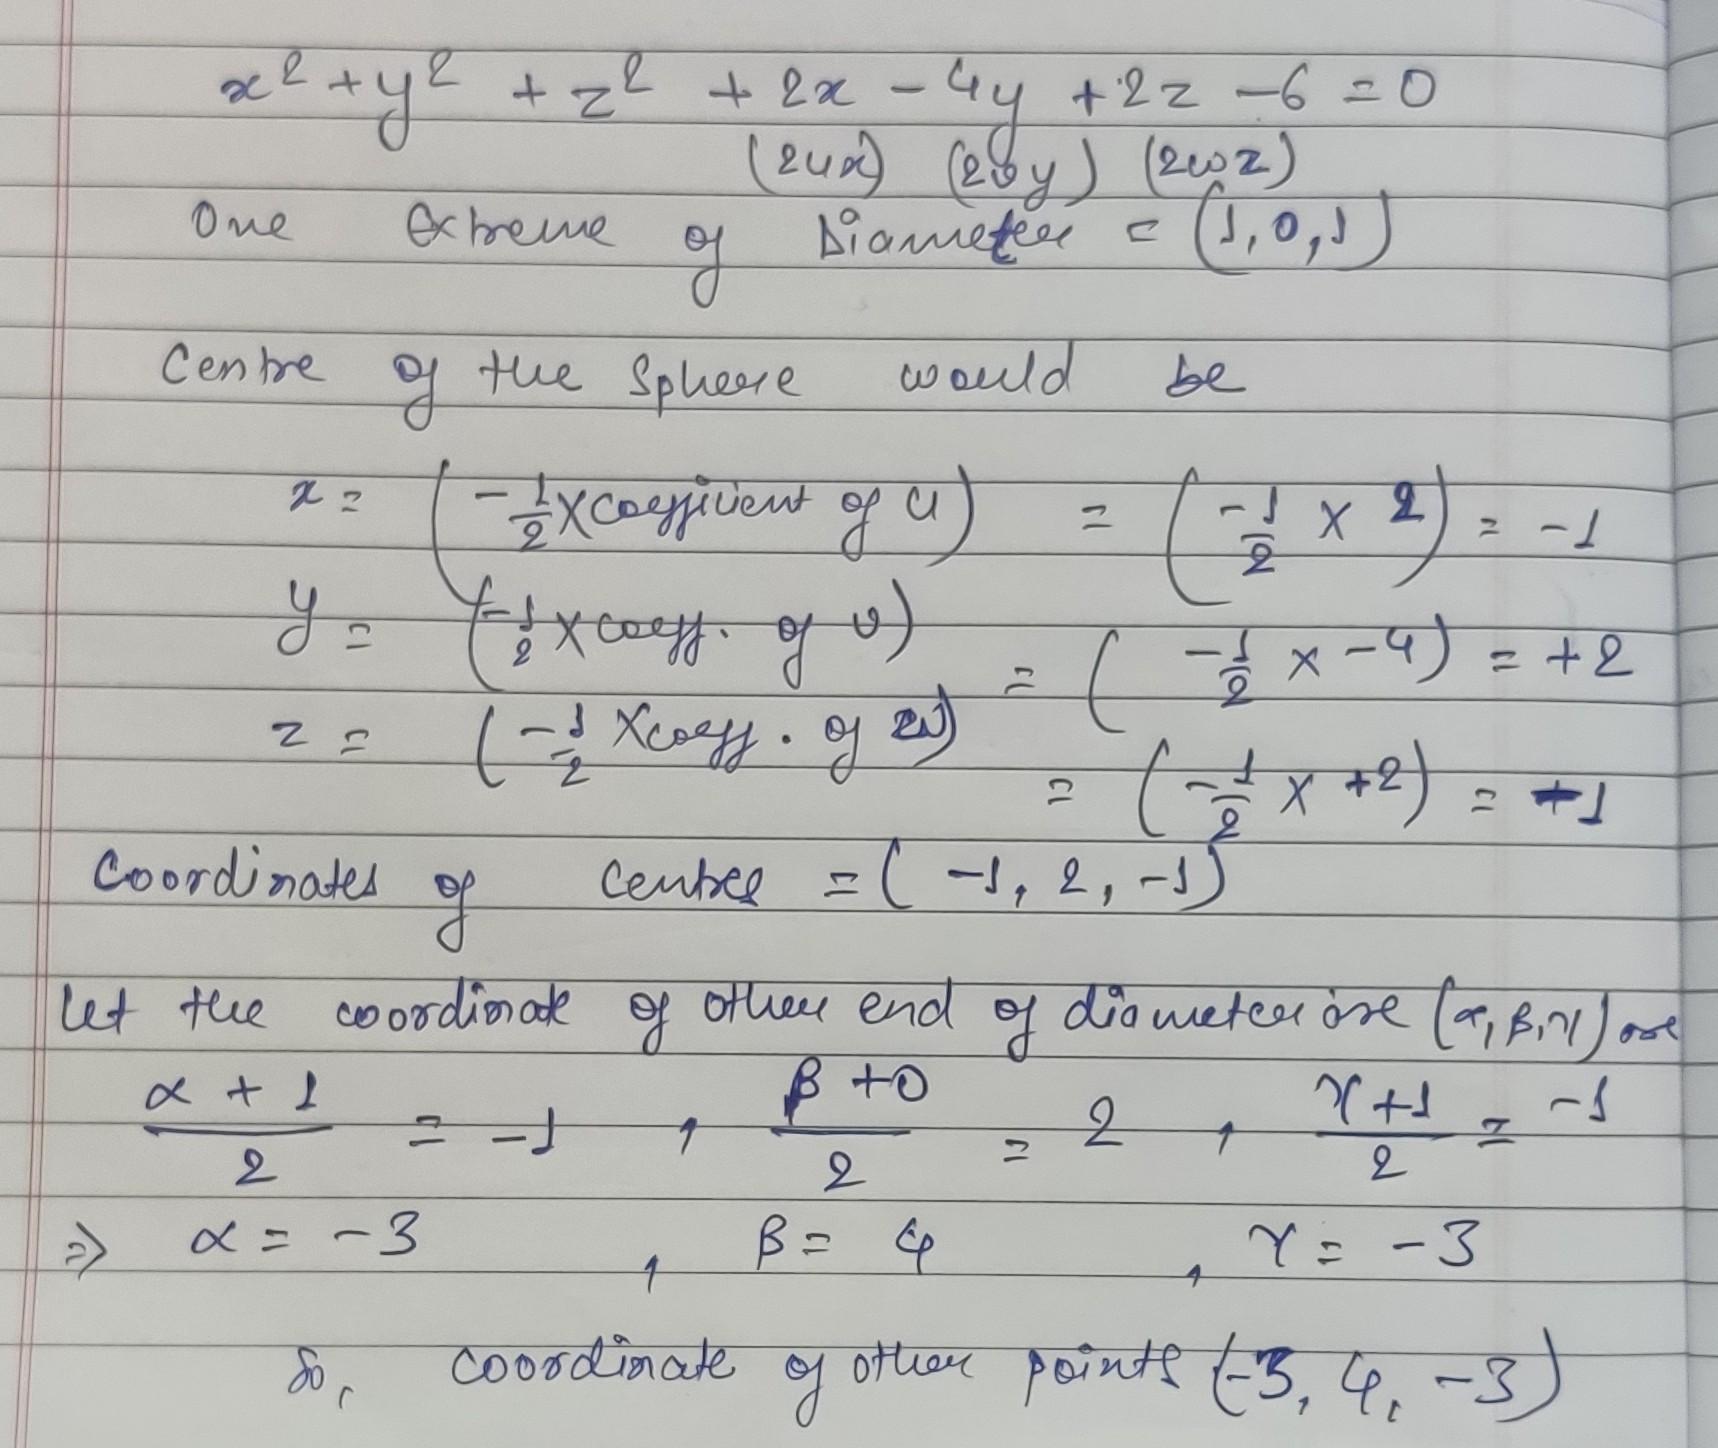 x² + y² + z² + 2x - 4y + 2z - 6 = 0
(2ux) (2vy) (2wz)
One Extreme of Diameter = (1, 0, 1)
Centre of the Sphere would be
x = (-1/2 × coefficient of u) = (-1/2 × 2) = -1
y = (-1/2 × coeff. of v) = (-1/2 × -4) = +2
z = (-1/2 × coeff. of w) = (-1/2 × +2) = -1
Coordinates of Centre = (-1, 2, -1)
Let the coordinate of other end of diameter are (α, β, γ) are
(α + 1)/2 = -1 , (β + 0)/2 = 2 , (γ + 1)/2 = -1
⇒ α = -3 , β = 4 , γ = -3
So, coordinate of other points (-3, 4, -3)